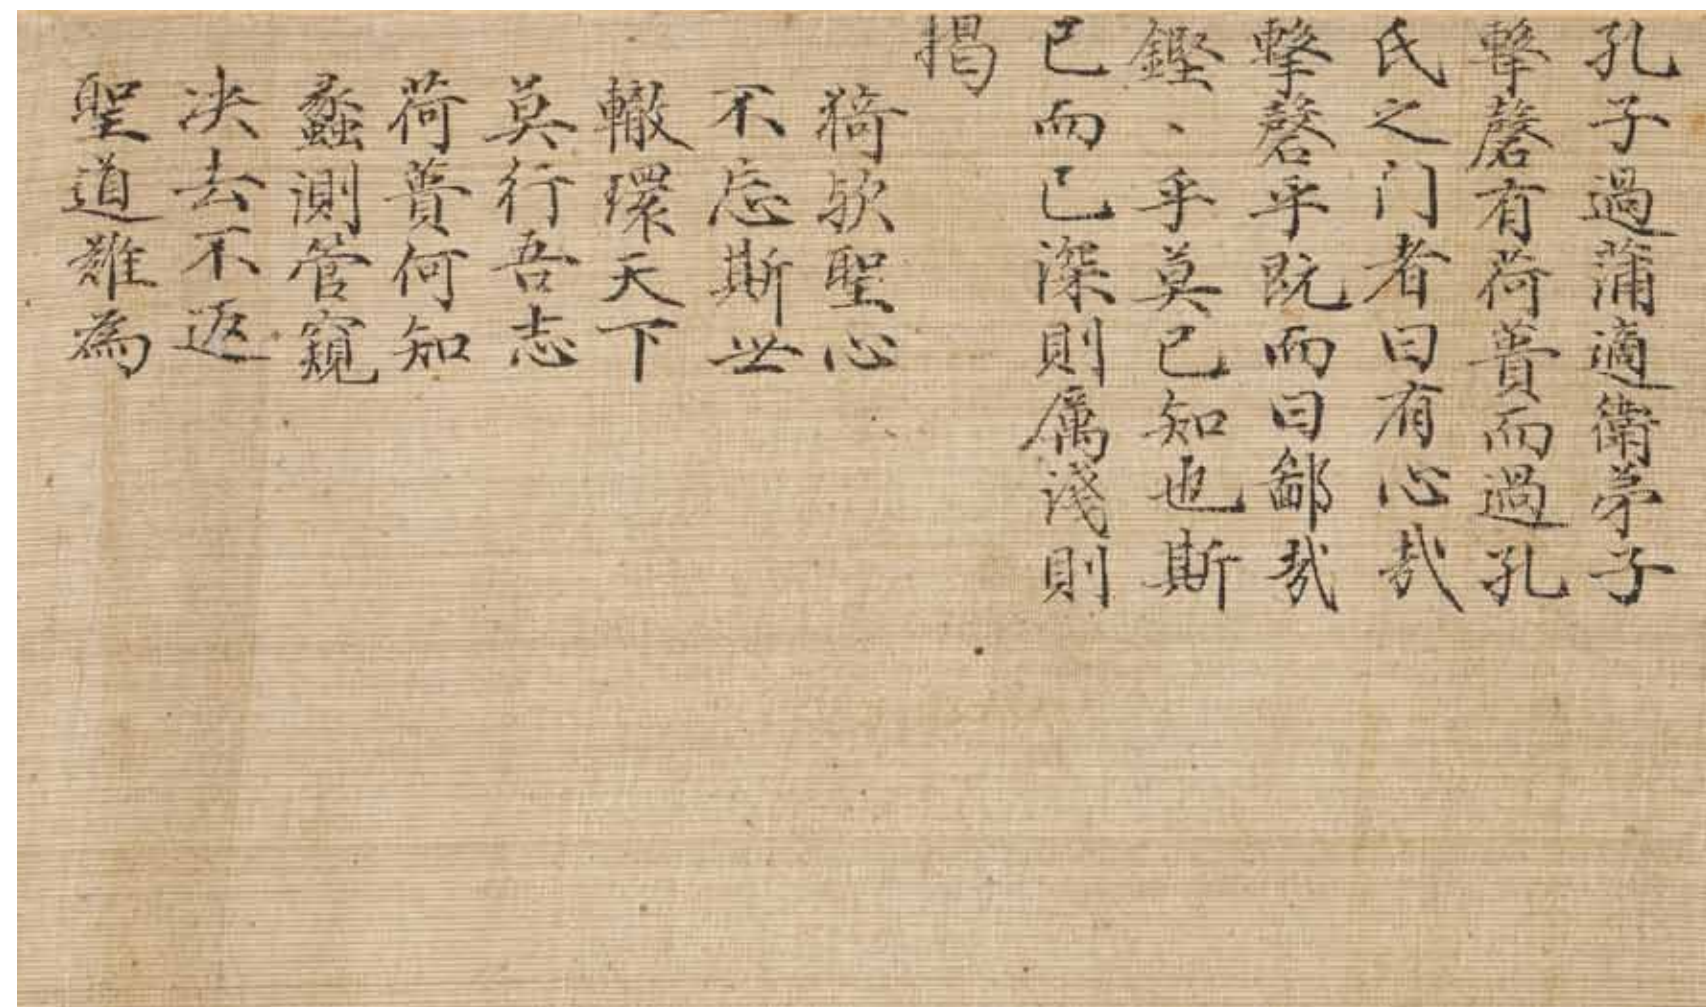 孔子過蒲適衛弟子
擊磬有荷蕢而過孔
氏之门者曰有心㢤
擊磬乎既而曰鄙㢤
鏗、乎莫己知也斯
已而已深則厲淺則
揭
猗欤聖心
不忘斯世
轍環天下
莫行吾志
荷蕢何知
蠡測管窺
决去不返
聖道難為